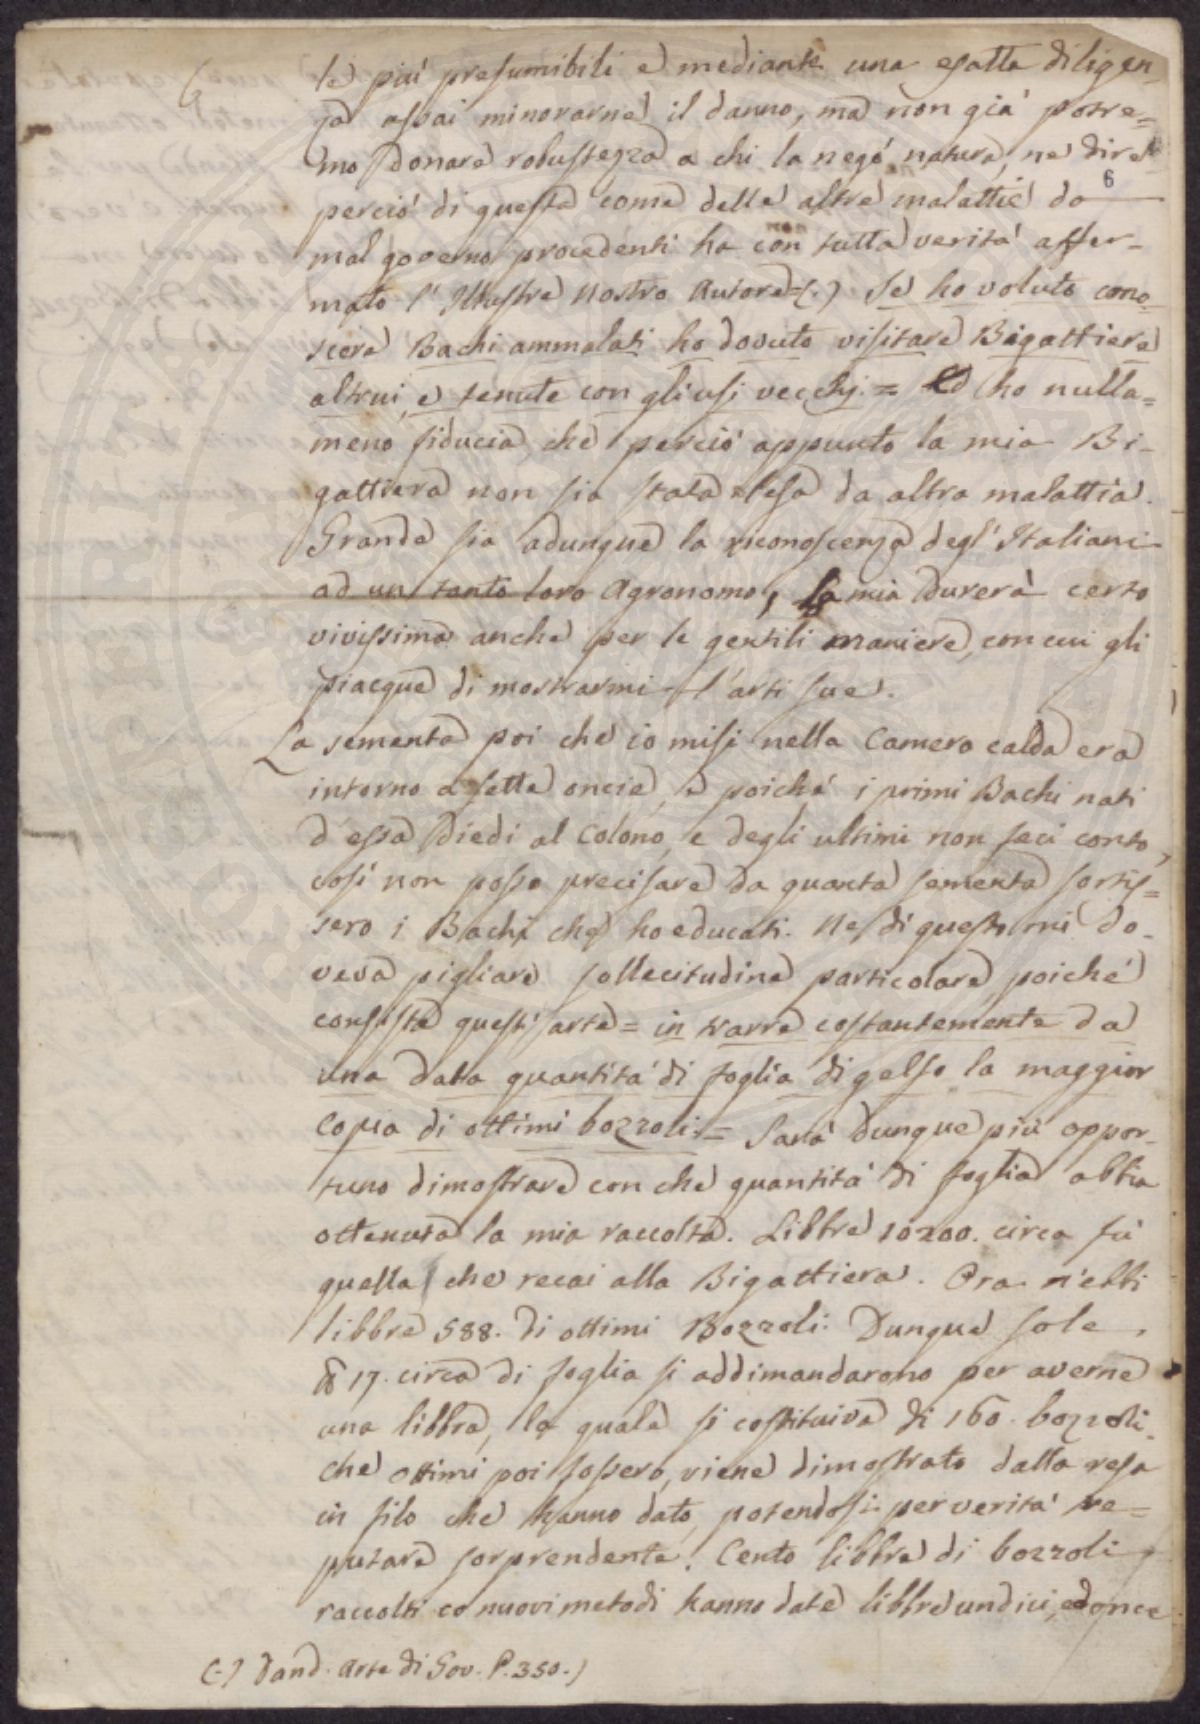 6
le piú presumibili e mediante una esatta diligen-
za assai minorarne il danno, ma non già potre=
mo donare robustezza a chi la negó natura, ne dire
6
perció di questa come delle altre malattie da
mal governo procedenti ha con tutta verità affer-
non
mato l'Illustre nostro Autore=(.) Se ho voluto cono
scere Bachi ammalati ho dovuto visitare Bigattiere
altrui, e tenute con gli usi vecchj.= Ed ho nulla=
meno fiducia che perció appunto la mia Bi-
gattiera non sia stata lesa da altra malattia.
Grande sia adunque la riconoscenza degl'Italiani
ad un tanto loro Agronomo, la mia durerà certo
vivissima anche per le gentili maniere, con cui gli
piacque di mostrarmi l'arti sue.
La sementa poi che io misi nella Camera calda era
intorno a sette oncie, e poiché i primi Bachi nati
d'essa diedi al Colono, e degli ultimi non feci conto,
cosí non posso precisare da quanta sementa sortis=
sero i Bachi che ho educati. Ne di questo mi do-
veva pigliare sollecitudine particolare, poiché
consiste quest'arte = in trarre costantemente da
una data quantità di foglia di gelso la maggior
copia di ottimi bozzoli.= Sarà dunque piú oppor-
tuno dimostrare con che quantità di foglia abbia
ottenuta la mia raccolta. Libbre 10200. circa fú
quella che recai alla Bigattiera. Ora n'ebbi
libbre 588. di ottimi Bozzoli: Dunque sole
℔ 17. circa di foglia si addimandarono per averne
una libbra, la quale si costituiva di 160. bozzoli.
che ottimi poi fossero, viene dimostrato dalla resa
in filo che hanno dato, potendosi per verità re=
putare sorprendente. Cento libbre di bozzoli
raccolti co nuovi metodi hanno date libbre undici, ed once
(.) Dand. Arte di Gov. P. 350.)